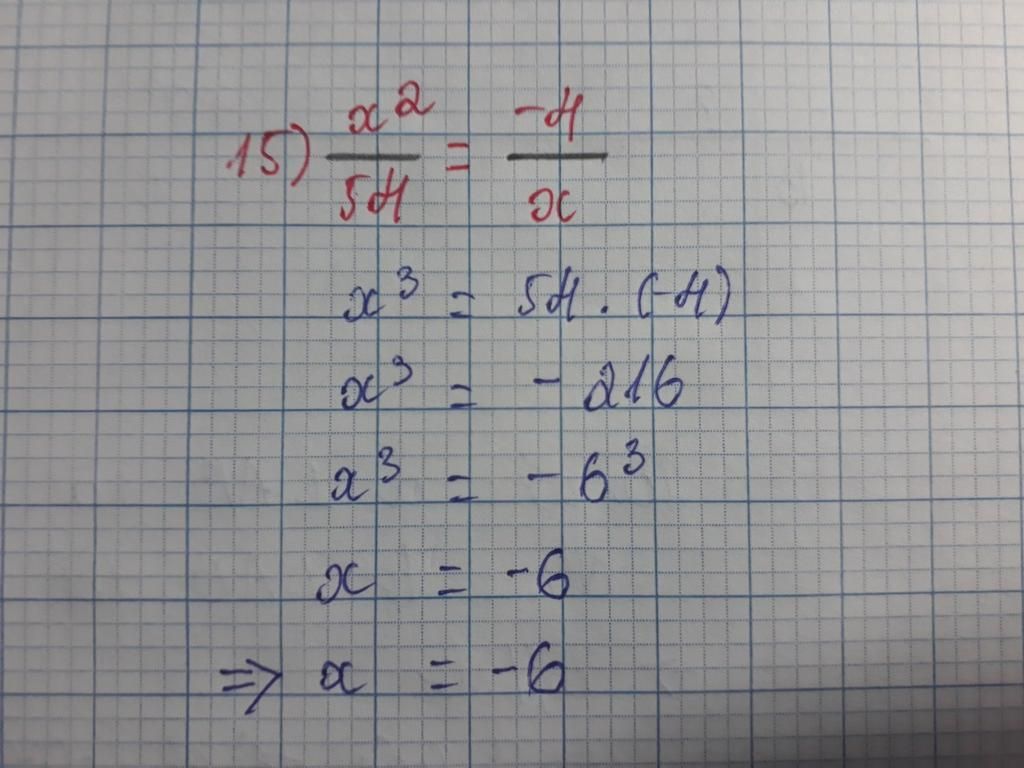 15) x²/54 = -4/x
x³ = 54 . (-4)
x³ = - 216
x³ = - 6³
x = -6
⇒ x = -6